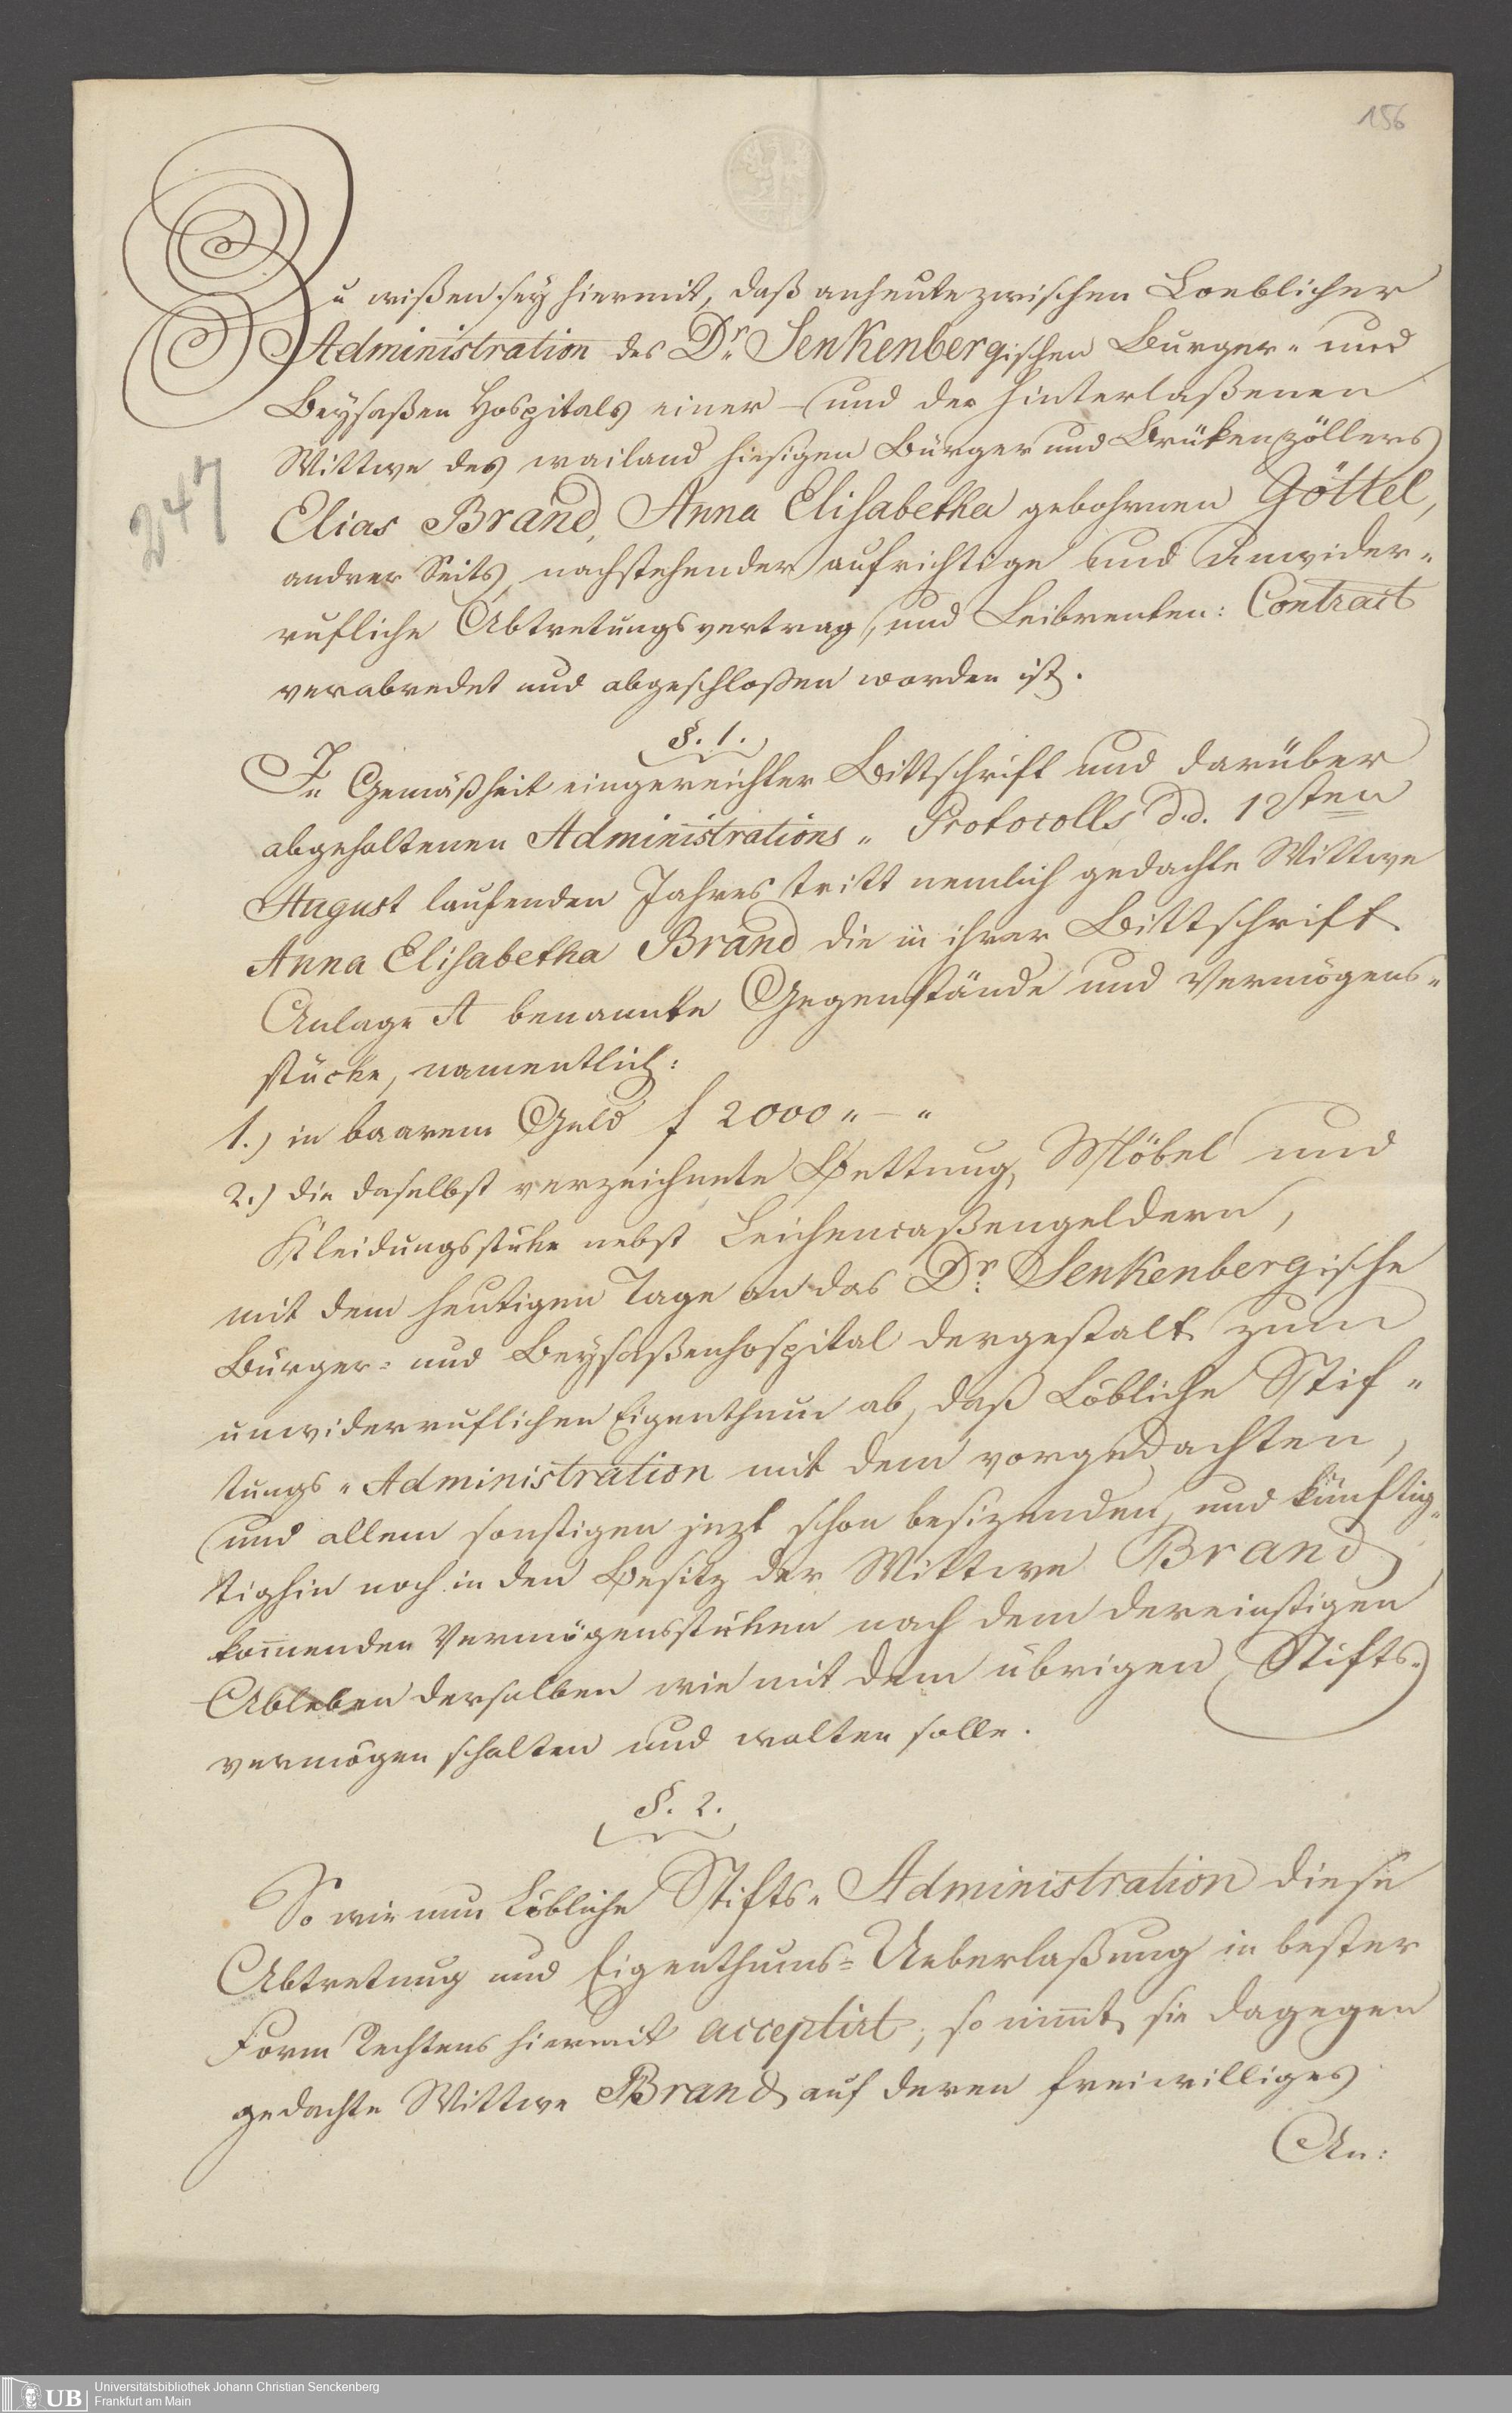 156
Zu wißen sey hiermit, daß anheute zwischen Loeblicher
Administration des Dr. Senkenbergischen Burger- und
Beysaßen Hospitals einer - und der hinterlaßenen
Wittwe des wailand hiesigen Bürger und Brükenzöllers
247
Elias Brand, Anna Elisabetha gebohrnen Göttel,
andrer Seits, nachstehender aufrichtige und unwider-
rufliche Abtretungsvertrag, und Leibrenten: Contract
verabredet und abgeschloßen worden ist.
§. 1.
In Gemäßheit eingereichter Bittschrift und darüber
abgehaltenen Administrations- Protocolls d.d. 12sten
August laufenden Jahres tritt nemlich gedachte Wittwe
Anna Elisabetha Brand die in ihrer Bittschrift
Anlage A benannte Gegenstände und Vermögens-
stücke, namentlich:
1.) in baarem Geld f 2000 „ — „
2.) die daselbst verzeichnete Bettung, Möbel und
Kleidungsstüke nebst Leichencaßengeldern,
mit dem heutigen Tage an das Dr. Senkenbergische
Bürger- und Beysaßenhospital dergestalt zum
unwiderruflichen Eigenthum ab, daß Löbliche Stif-
tungs-Administration mit dem vorgedachten,
und allem sonstigen jezt schon besizenden, und künftig-
tighin noch in den Besitz der Wittwe Brand
kom̅enden Vermögensstüken nach dem dereinstigen
Ableben derselben wie mit dem übrigen Stifts-
vermögen schalten und walten solle.
§. 2.
So wie nun Löbliche Stifts-Administration diese
Abtretung und Eigenthums-Ueberlaßung in bester
Form Rechtens hiermit acceptirt, so nim̅t sie dagegen
gedachte Wittwe Brand auf deren freiwilliges
An:
UB
Universitätsbibliothek Johann Christian Senckenberg
Frankfurt am Main